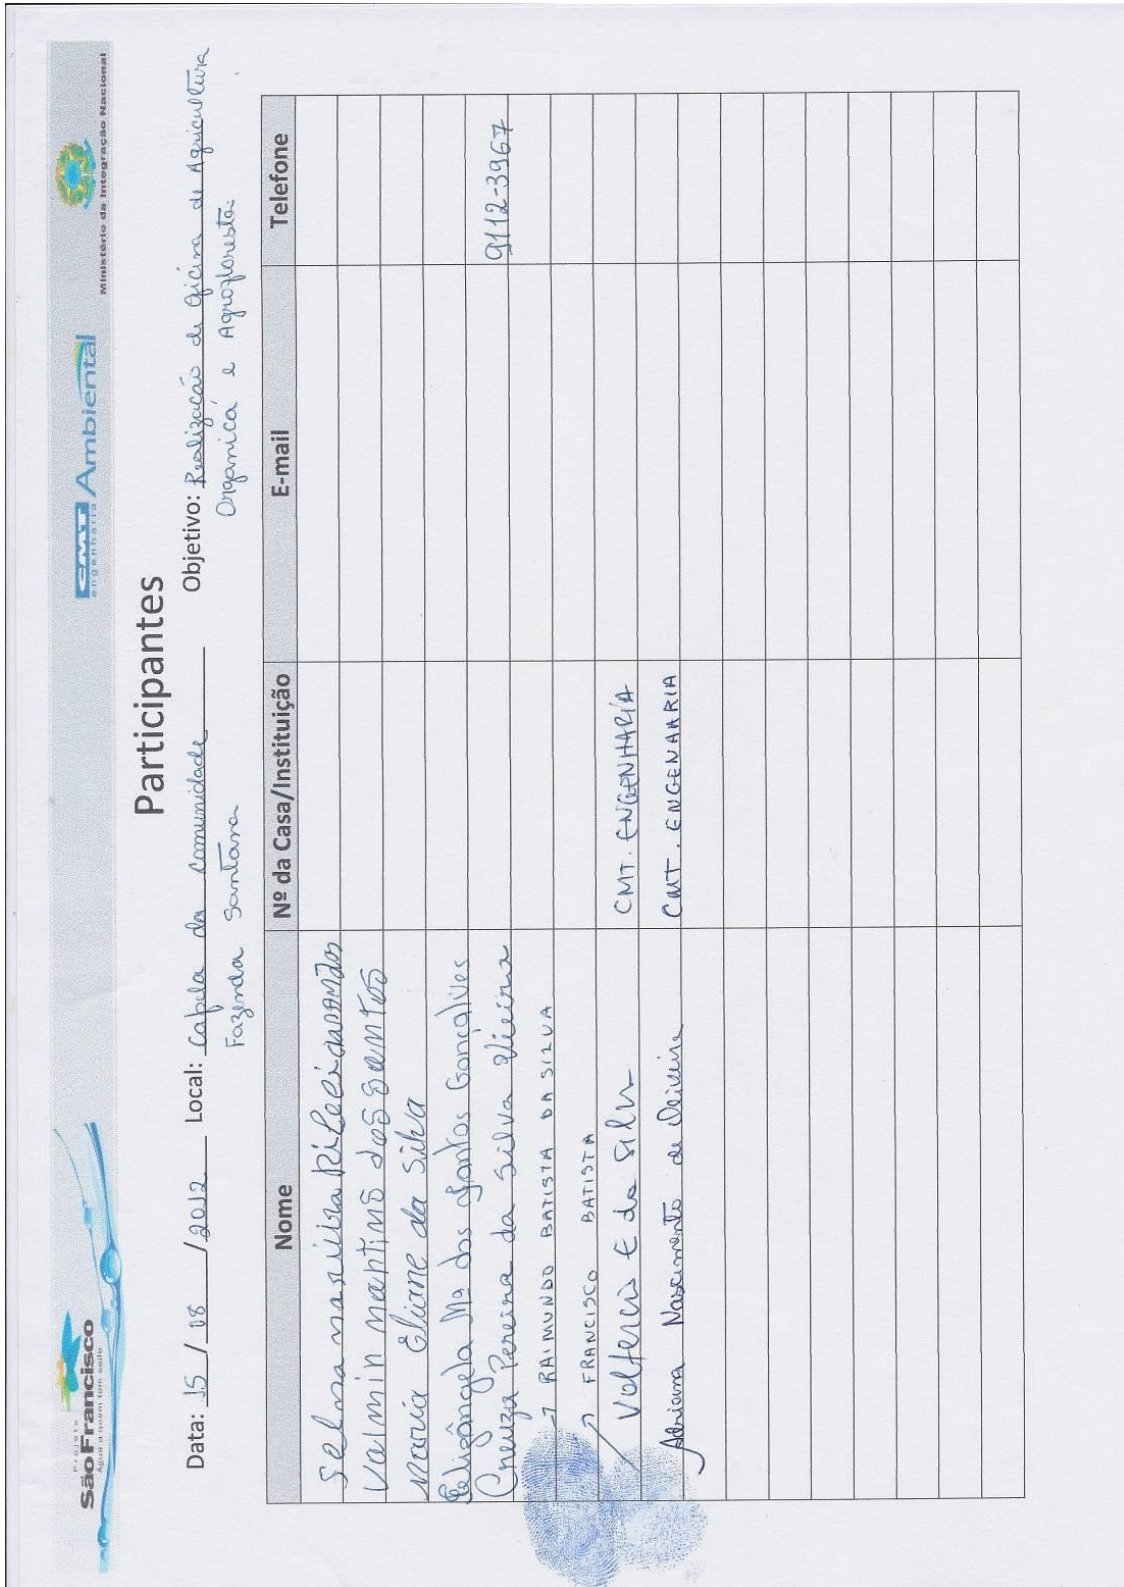 Projeto
São Francisco
Água a quem tem sede
CMT Ambiental
engenharia
Ministério da Integração Nacional
Participantes
Data: 15 / 08 / 2012 Local: Capela da comunidade Objetivo: Realização de Oficina de Agricultura
Fazenda Santana Organica e Agrofloresta.
Nome Nº da Casa/Instituição E-mail Telefone
Selma
Valmin martins dos santos
Maria Eliane da Silva
Elizângela Mª dos Santos Gonçalves
Cneuza Pereira da Silva Vieira 9112-3967
RAIMUNDO BATISTA DA SILVA
FRANCISCO BATISTA
Valtercio E da Silva CMT. ENGENHARIA
Adriana Nascimento de Oliveira CMT. ENGENHARIA